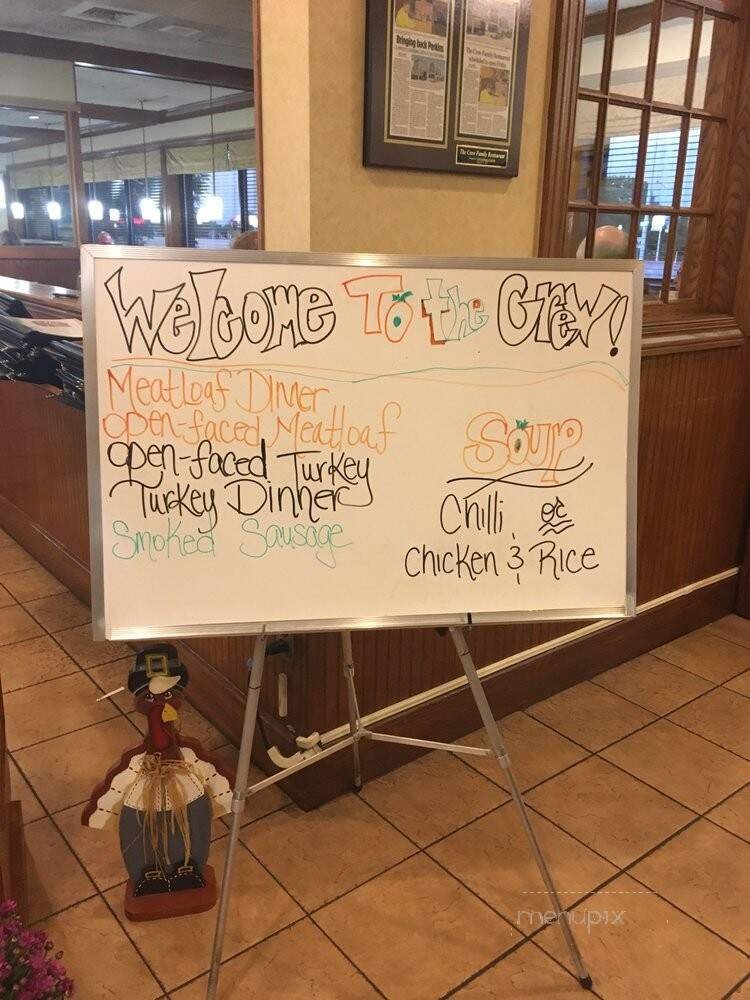 Bringing back Perkins
The Crew Family Restaurant
Welcome To the Crew!
Meatloaf Dinner
open-faced Meatloaf
open-faced Turkey
Turkey Dinner
Smoked Sausage
Soup
Chilli or
Chicken & Rice
menupix